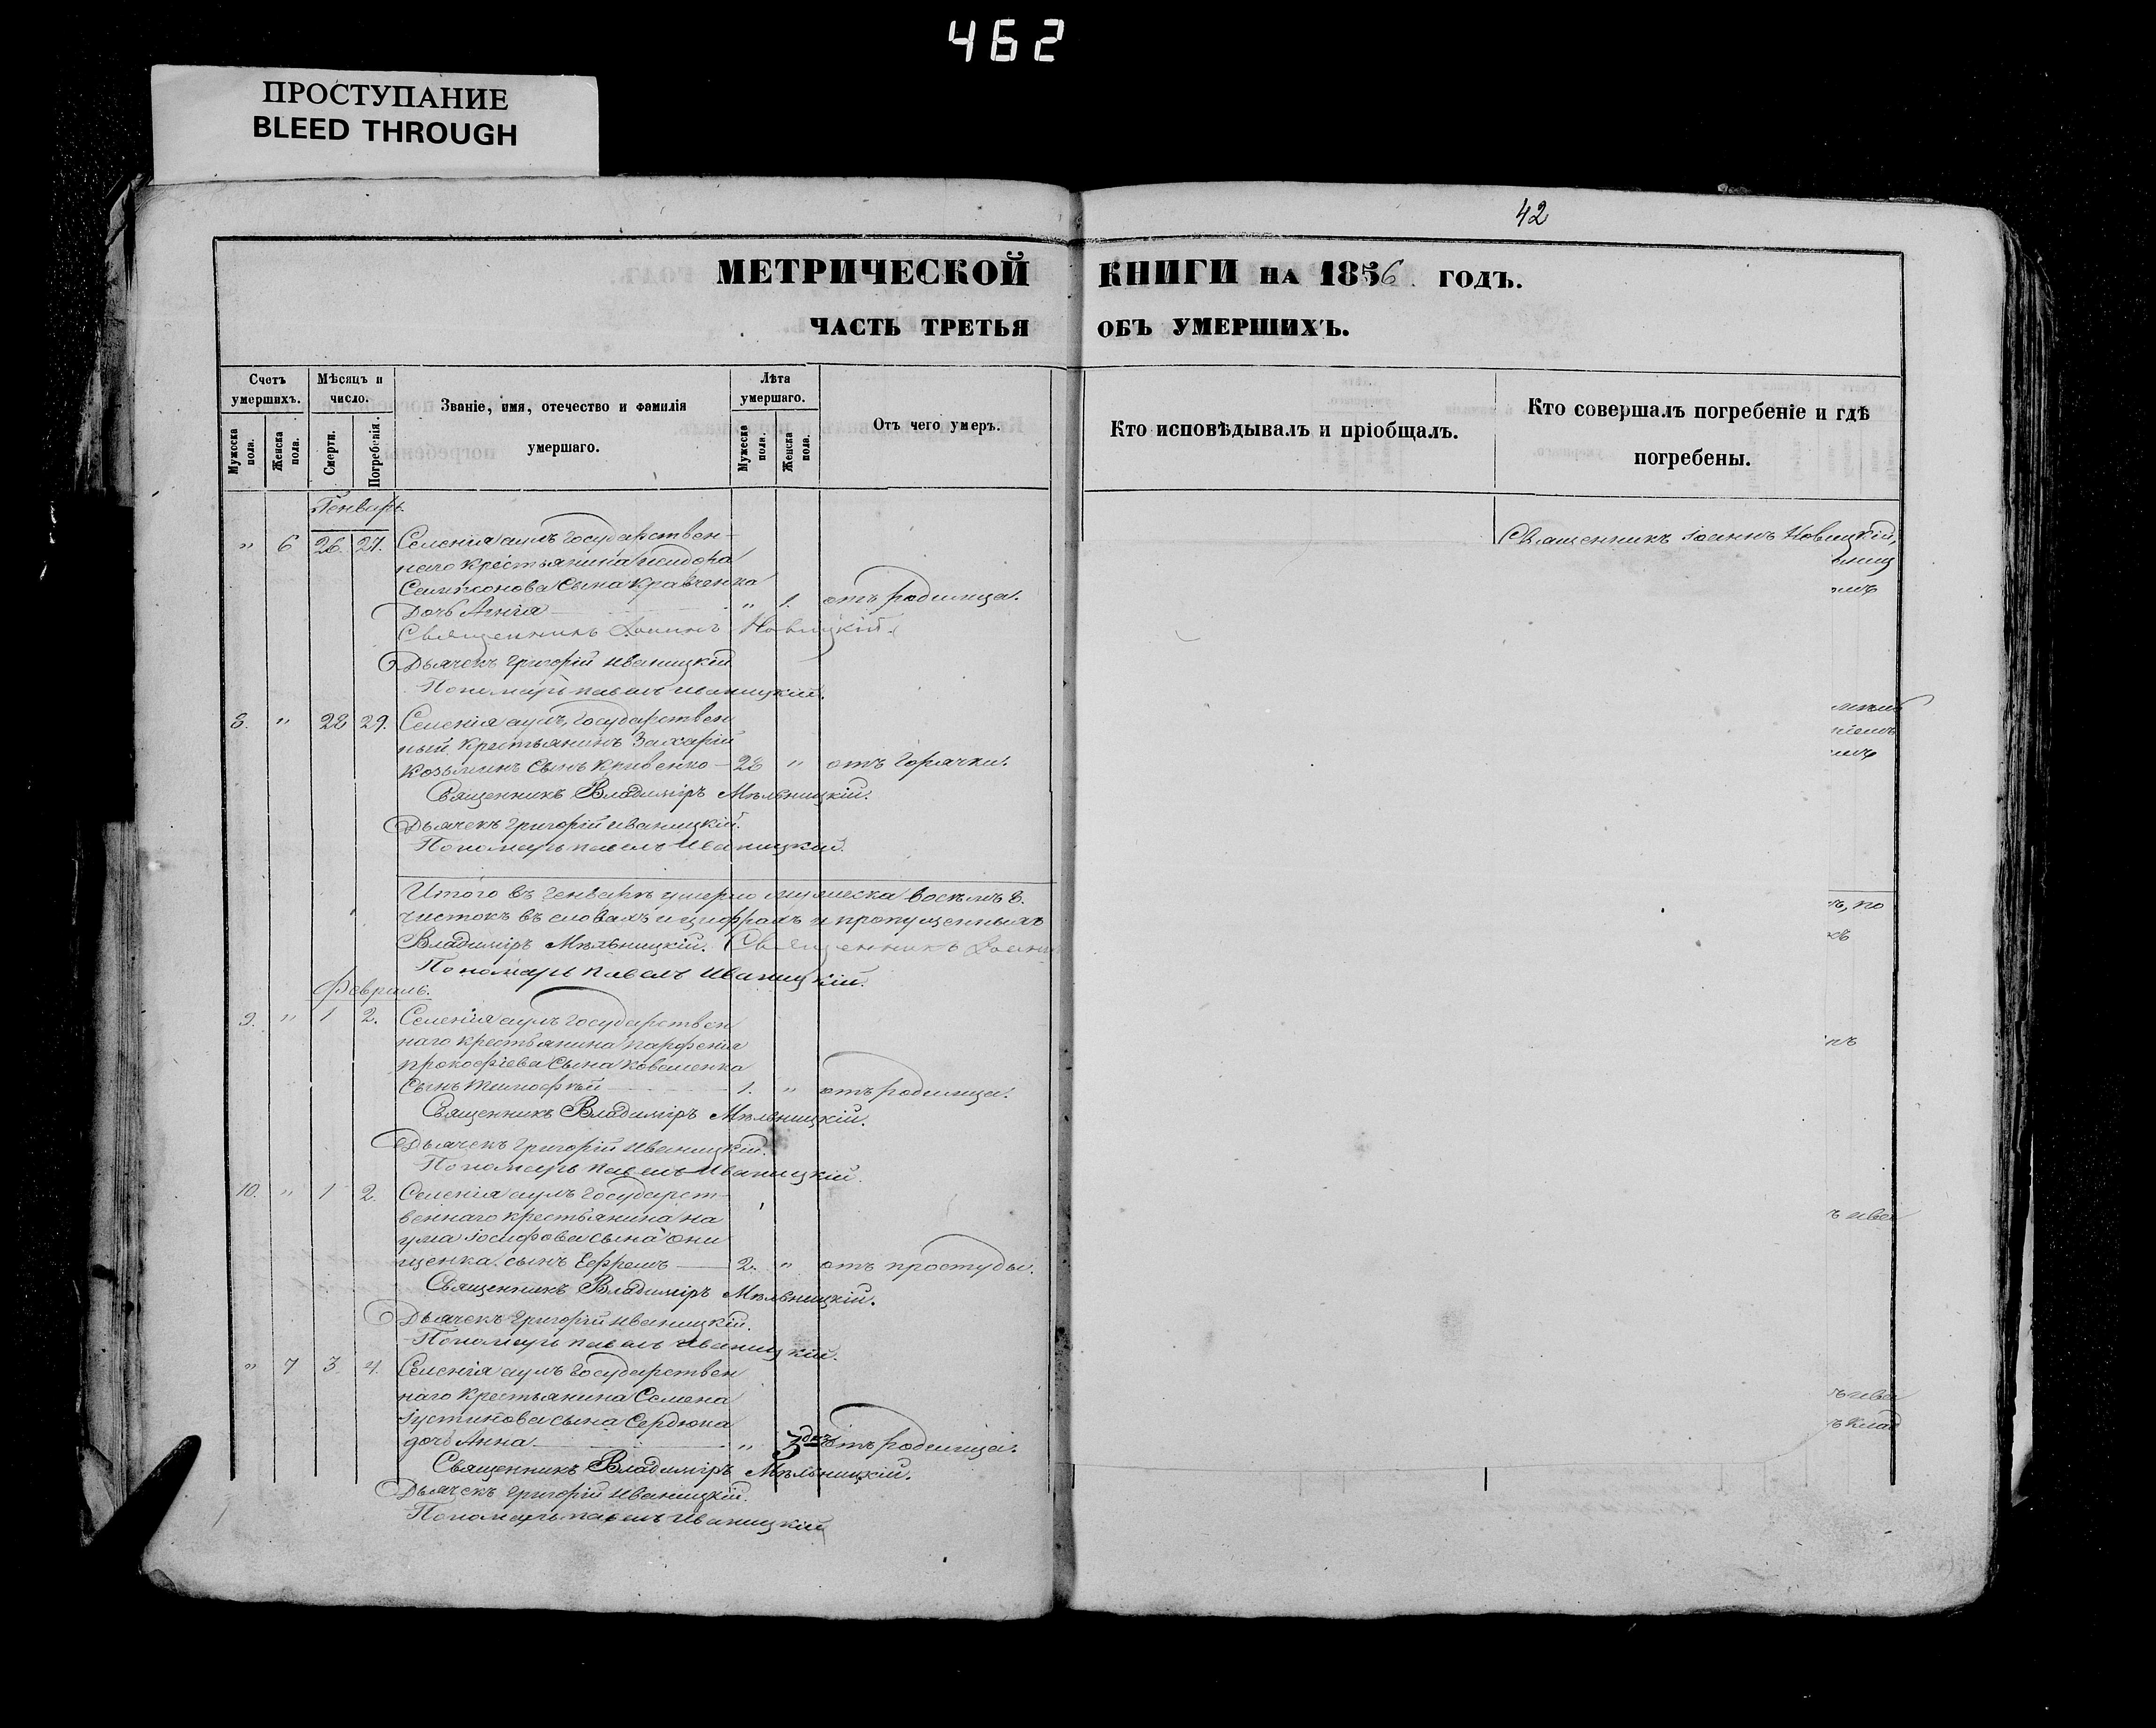 462
ПРОСТУПАНИЕ
BLEED THROUGH
42
МЕТРИЧЕСКОЙ КНИГИ НА 1856 ГОДЪ.
ЧАСТЬ ТРЕТЬЯ ОБЪ УМЕРШИХЪ.
Счетъ умершихъ.
Мужеска пола.
Женска пола.
Мѣсяцъ и число.
Смерти.
Погребенія.
Званіе, имя, отечество и фамилія
умершаго.
Лѣта умершаго.
Мужеска пола.
Женска пола.
Отъ чего умеръ.
Кто исповѣдывалъ и пріобщалъ.
Кто совершалъ погребеніе и гдѣ
погребены.
Генварь.
" 6 26. 27. Селенія аулъ Государствен-
Священникъ Іоаннъ Новицкій,
наго крестьянина Исидора
Сампсонова сына Кравченка
Дочь " 1. отъ родимца.
Священникъ Іоаннъ Новицкій.
Дьячекъ Григорій Иваницкій
Пономарь Павелъ Иваницкій.
8. " 28 29. Селенія аулъ, Государствен
ный крестьянинъ Захарій
Козьминъ сынъ 28 " отъ горячки.
Священникъ Владиміръ Мѣльницкій.
Дьячекъ Григорій Иваницкій.
Пономарь Павелъ Иваницкій.
Итого въ Генварѣ умерло мужеска восемь 8.
чистокъ въ словахъ и цифрахъ и пропущенныхъ
ъ, по
Владиміръ Мѣльницкій. Священникъ Іоаннъ
Пономарь Павелъ Иваницкій.
Февраль.
9. " 1 2. Селенія аулъ Государствен
наго крестьянина Парфенія
Прокофіева сына Коваленка
сынъ Тимофѣй 1. " отъ родимца.
Священникъ Владиміръ Мѣльницкій.
Дьячекъ Григорій Иваницкій.
Пономарь Павелъ Иваницкій.
10. " 1 2. Селенія аулъ Государст-
веннаго крестьянина На
ъ ива
ума Іосифова сына Они
щенка сынъ Ефремъ 2. " отъ простуды.
Священникъ Владиміръ Мѣльницкій.
Дьячекъ Григорій Иваницкій.
Пономарь Павелъ Иваницкій.
" 7 3 4. Селенія аулъ Государствен
наго крестьянина Семена
ъ ива
Іустинова сына Сердюка
ъ клад
дочь Анна " 3 дн. отъ родимца.
Священникъ Владиміръ Мѣльницкій.
Дьячекъ Григорій Иваницкій.
Пономарь Павелъ Иваницкій